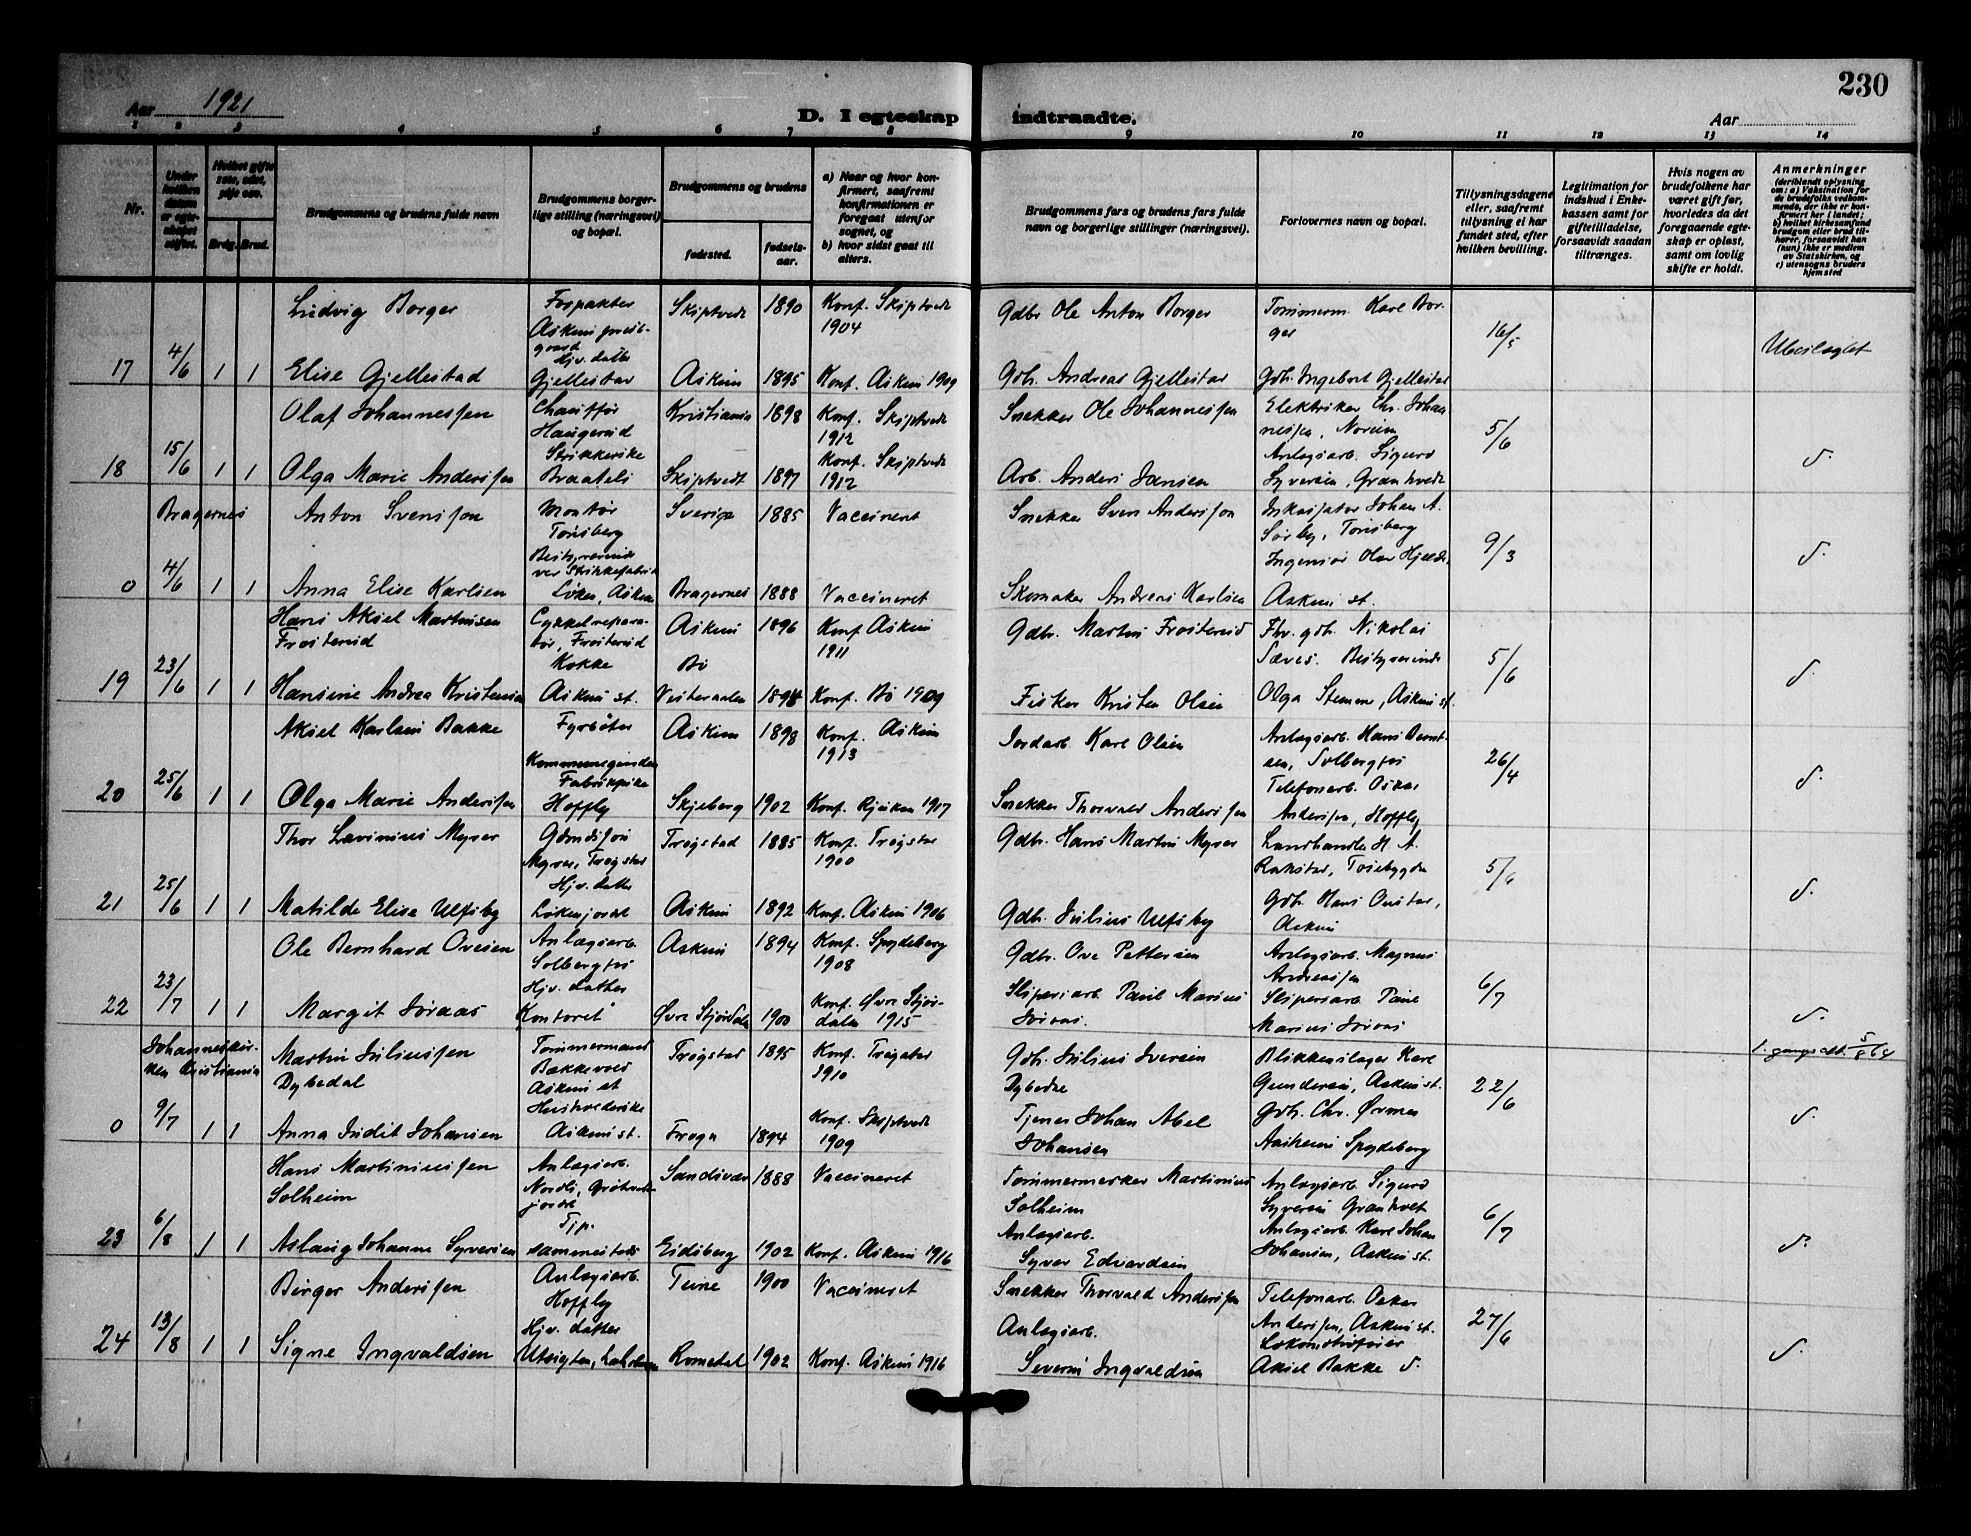 230
Aar 1921
D. I egteskap indtraadte.
Aar
1 2 3 4 5 6 7 8 9 10 11 12 13 14
Nr.
Under hvilken datum er egteskapet stiftet.
Hvilket gifte
Brdg. Brud.
Brudgommens og brudens fulde navn
Brudgommens borgerlige stilling (næringsvei) og bopæl.
Brudgommens og brudens
fødested.
fødselsaar.
a) Naar og hvor konfirmert, saafremt konfirmationen er foregaat utenfor sognet, og
b) hvor sidst gaat til alters.
Brudgommens fars og brudens fars fulde navn og borgerlige stillinger (næringsvei).
Forlovernes navn og bopæl.
Tillysningsdagene eller, saafremt tillysning ei har fundet sted, efter hvilken bevilling.
Legitimation for indskud i Enkekassen samt for giftetilladelse, forsaavidt saadan tiltrænges.
Hvis nogen av brudefolkene har været gift før, hvorledes da det foregaaende egteskap er opløst, samt om lovlig skifte er holdt.
Anmerkninger
(deriblandt oplysning om: a) Vaksination for de brudefolks vedkommende, der ikke er konfirmert her i landet; b) hvilket kirkesamfund brudgom eller brud tilhører, forsaavidt han (hun) ikke er medlem av Statskirken, og c) utensogns bruders hjemsted
Ludvig Borger Forpakter Askim prestgaard Skiptvedt 1890 Konf. Skiptvedt 1904 Gdbr Ole Anton Borger Tømmerm. Karl Borger 16/5 Ubeslegtet
17 4/6 1 1 Elise Gjellestad Hjv. datter Gjellestad Askim 1895 Konf. Askim 1909 Gdb. Andreas Gjellestad Gdb. Ingebort Gjellestad
Olaf Johannessen Chauffør Haugerud Kristiania 1898 Konf. Skiptvedt 1912 Snekker Ole Johannessen Elektriker Chr. Johannessen, Noreim 5/6
18 15/6 1 1 Olga Marie Anderssen Strikkerske Braateli Skiptvedt 1897 Konf. Skiptvedt 1912 Arb. Anders Jansen Anlægsarb. Sigurd Syversen, Granhvedt
Bragernes Anton Svenssen Montør Tønsberg Sverige 1885 Vaccineret Snekker Sven Anderssen Inkassator Johan A. Sørby, Tønsberg 9/3
0 4/6 1 1 Anna Elise Karlsen Løken, Askim Bragernes 1888 Vaccineret Skomaker Andreas Karlsen Ingeniør Olav Hjelde, Askim st.
Hans Aksel Martinsen Frøiterud Cykkelreparatør, Frøiterud Askim 1896 Konf Askim 1911 Gdbr. Martin Frøiterud Fhv. gdb. Nikolai Sæves. 5/6
19 23/6 1 1 Hansine Andrea Kristensen Kokke Askim st. Bø Vesteraalen 1894 Konf. Bø 1909 Fisker Kristen Olsen Bestyrerinde Olga Stemme, Askim st.
Aksel Karlsen Bakke Fyrbøter Askim 1898 Konf. Askim 1913 Jordarb Karl Olsen Anlægsarb. Hans Berntsen, Solbergfos 26/4
20 25/6 1 1 Olga Marie Anderssen Fabrikpike Hoffly Skjeberg 1902 Konf. Rjukan 1917 Snekker Thorvald Anderssen Telefonarb. Oskar Anderssen, Hoffly
Thor Lavinius Myrer Myrer, Trøgstad Trøgstad 1885 Konf. Trøgstad 1900 Gdbr. Hans Martin Myrer Landhandler H. A. Rakstad, Tosebygda 5/6
21 25/6 1 1 Matilde Elise Ulfsby Hjv. datter Løkenjordet Askim 1892 Konf. Askim 1906 Gdbr. Julius Ulfsby Gdb. Hans Onstad, Askim
Ole Bernhard Ovesen Anlægsarb. Solbergfos Askim 1894 Konf. Spydeberg 1908 Gdbr. Ove Pettersen Anlægsarb. Magnus Andreassen 6/7
22 23/7 1 1 Margit Joraas Hjv. datter Kontoret Øvre Stjørdalen 1900 Konf. Øvre Stjørdalen 1915 Sliperiarb. Paul Marius Joraas. Sliperiarb. Paul Marius Joraas
Johanneskirken Kristiania Martin Juliussen Dybedal Tømmermand Bækkevold Askim st Trøgstad 1895 Konf. Trøgstad 1910 Gdb. Julius Iversen Dybedal Blikkenslager Karl Gundersen, Askim st. 22/6
0 9/7 1 1 Anna Judit Johansen Husholderske Askim st. Frogn 1894 Konf. Skiptvedt 1909 Tjener Johan Abel Johansen Gdb. Chr. Ørmen Aasheim Spydeberg
Hans Martiniussen Solheim Anlægsarb. Nordli, Grøtvedtjordet Sandsvær 1888 Vaccineret Tømmermerker Martinius Solheim Anlægsarb. Sigurd Syversen Granhvet 6/7
23 6/8 1 1 Aslaug Johanne Syversen Tjp. sammesteds Eidsberg 1902 Konf. Askim 1916 Anlægsarb. Syver Edvardsen Anlægsarb. Karl Johan Johansen, Askim st.
Birger Anderssen Anlægsarb. Hoffly Tune 1900 Vaccineret Snekker Thorvald Anderssen Telefonarb. Oskar Anderssen, Askim st. 27/6
24 13/8 1 1 Signe Ingvaldsen Hjv. datter Utsigten, Romedal 1902 Konf. Askim 1916 Anlægsarb. Severin Ingvaldsen Lokomotivfører Aksel Bakke